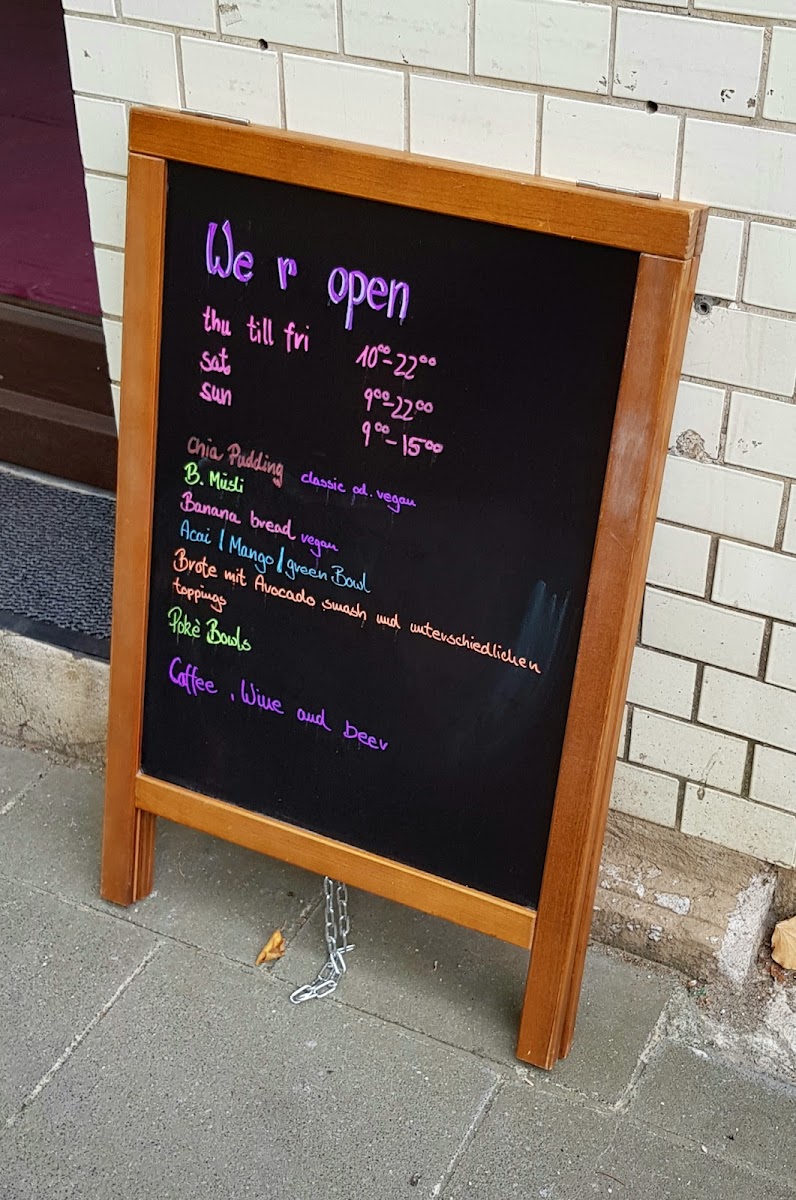 We r open
thu till fri 10⁰⁰-22⁰⁰
sat 9⁰⁰-22⁰⁰
sun 9⁰⁰-15⁰⁰
Chia Pudding classic od. vegan
B. Müsli
Banana bread vegan
Acai / Mango / green Bowl
Brote mit Avocado smash und unterschiedlichen
toppings
Pokè Bowls
Coffee , Wine and beer